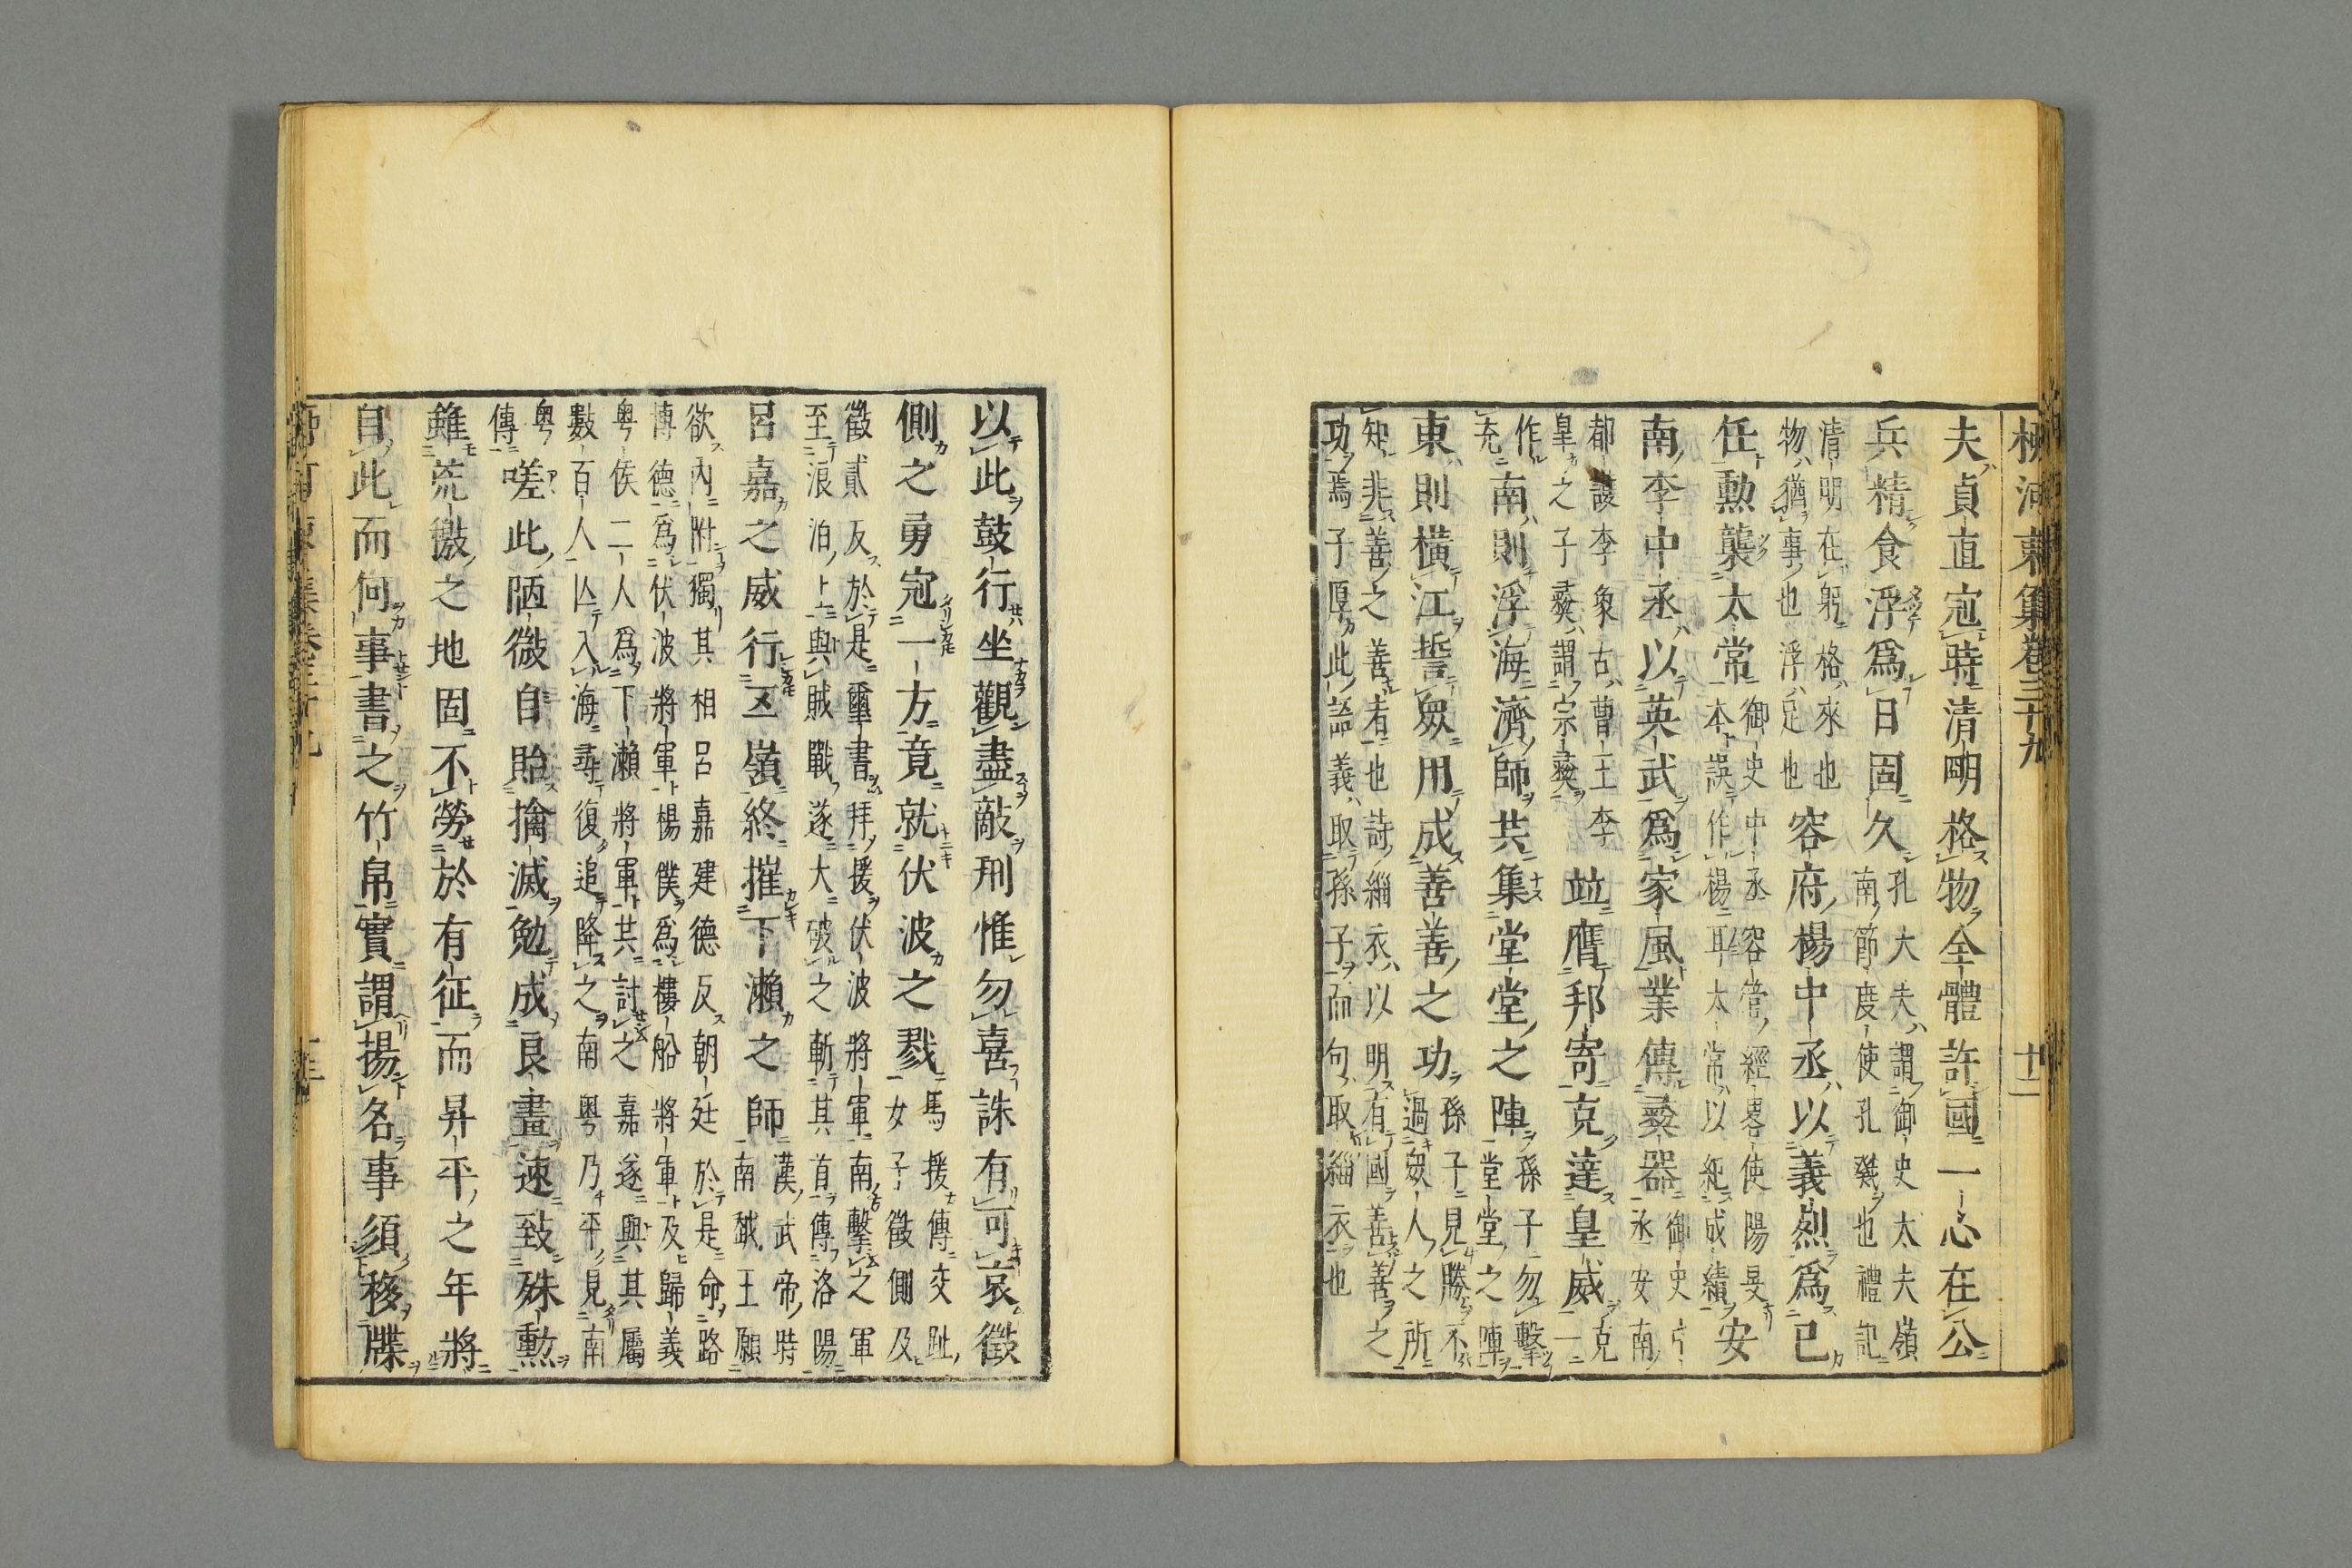 柳河東集卷三十九 十二
夫貞直寇時清明格物全體許國一心在公
兵精食浮爲日固久孔大夫謂御史太夫嶺
南節度使孔戣也禮記
清明在躬格來也
物猶事也浮足也容府楊中丞以義烈爲已
任勲襲太常御史中丞容管經畧使陽旻
本誤作楊耳太常以紀成績安
南李中丞以英武爲家風業傳彛器御史
丞安南
都護李象古曹王李
皇之子彛謂宗彛竝膺邦寄克達皇威克
一
作
充南則浮海濟師共集堂堂之陣孫子勿擊
堂堂之陣
東則横江誓衆用成善善之功孫子見勝不
過衆人之所
知非善之善者也詩緇衣以明有國善善之
功焉子厚此語義取孫子而句取緇衣也
以此鼓行坐觀盡敵刑惟勿喜誅有可哀徵
側之勇寇一方竟就伏波之戮馬援傳交趾
女子徵側及
徵貳反於是璽書拜援伏波將軍南擊之軍
至浪泊上與賊戰遂大破之斬其首傳洛陽
呂嘉之威行五嶺終摧下瀨之師漢武帝時
南越王願
欲內附獨其相呂嘉建德反朝廷於是命路
博德爲伏波將軍楊僕爲樓船將軍及歸義
粤侯二人爲下瀨將軍其討之嘉遂與其屬
數百人亾入海尋復追降之南粤乃平見南
粤
傳嗟此陋微自貽擒滅勉成良畫速致殊勲
雖荒徼之地固不勞於有征而昇平之年將
自此而何事書之竹帛實謂揚名事須移牒